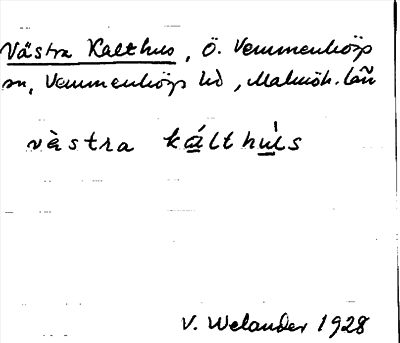 Västra Kalthus, Ö. Vemmenhögs
sn, Vemmenhögs hd, Malmöh. län
vàstra kálthùs
V. Welander 1928